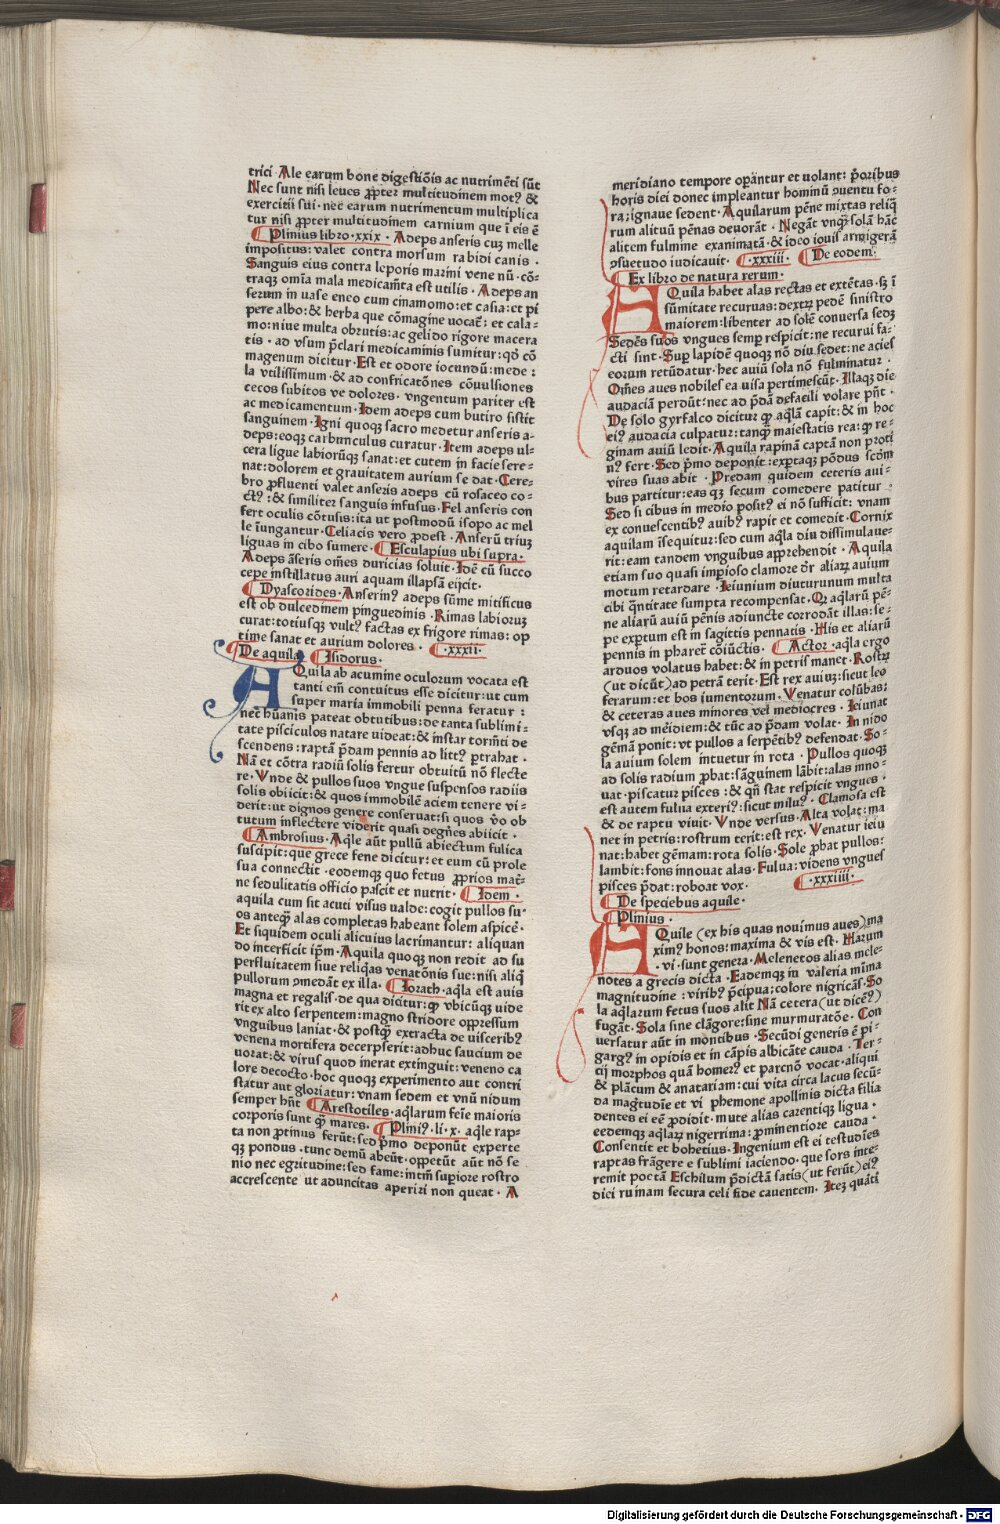 trici· Ale earum bone digestiõis ac nutrimẽti sũt
Nec sunt nisi leues ꝓpter multitudinem motꝰ &
exercitii sui·nec earum nutrimentum multiplica
tur nisi ꝓpter multitudinem carnium que ĩ eis ẽ
Plinius libro·xxix· Adeps anseris cuꝫ melle
impositus:valet contra morsum rabidi canis·
Sanguis eius contra leporis marini vene nũ·cõ-
traqꝫ omĩa mala medicamẽta est utilis· Adeps an
serum in uase eneo cum cinamomo:et casia:et pi
pere albo:& herba que cõmagine uocat̃:et cala-
mo:niue multa obrutis:ac gelido rigore macera
tis·ad vsum p̃clari medicaminis sumitur:qd̓ cõ
magenum dicitur·Est et odore iocundũ:mede:
la vtilissimum·& ad confricatõnes cõuulsiones
cecos subitos ve dolores·vngentum pariter est
ac medicamentum·Idem adeps cum butiro sistit
sanguinem·Igni quoqꝫ sacro medetur anseris a-
deps:eoqꝫ carbunculus curatur·Item adeps ul-
cera ligue labiorũqꝫ sanat:et cutem in facie sere-
nat:dolorem et grauitatem aurium se dat·Cere-
bro ꝓfluenti valet anseris adeps cũ rosaceo co-
ctꝰ:& similiter sanguis infusus·Fel anseris con
fert oculis cõtusis:ita ut postmodũ isopo ac mel
le ĩungantur·Celiacis vero ꝓdest·Anserũ triuꝫ
liguas in cibo sumere· Esculapius ubi supra·
Adeps ãseris om̃es duricias soluit·Idẽ cũ succo
cepe instillatus auri aquam illapsã eijcit·
Dyascorides·Anserinꝰ adeps sũme mitificus
est ob dulcedinem pinguedinis·Rimas labioruꝫ
curat:totiusqꝫ vultꝰ factas ex frigore rimas:op
time sanat et aurium dolores· ·xxxii·
De aquila Isidorus·
AQuila ab acumine oculorum vocata est
tanti em̃ contuitus esse dicitur:ut cum
super maria immobili penna feratur:
nec hũanis pateat obtutibus:de tanta sublimi-
tate pisciculos natare uideat:& instar torm̃ti de
scendens:raptã p̃dam pennis ad littꝰ ꝑtrahat·
Nã et cõtra radiũ solis fertur obtuitũ nõ flecte
re·Vnde & pullos suos vngue suspensos radiis
solis obiicit:& quos immobilẽ aciem tenere vi-
derit:ut dignos genere conseruat:si quos v̓o ob
tutum inflectere viderit quasi degñes abiicit·
Ambrosius·Aqle aũt pullũ abiectum fulica
suscipit:que grece fene dicitur:et eum cũ prole
sua connectit·eodemqꝫ quo fetus ꝓprios mat̃-
ne sedulitatis officio pascit et nutrit· Idem·
aquila cum sit acuti visus ualde:cogit pullos su-
os anteqꝫ alas completas habeant solem aspice·
Et siquidem oculi alicuius lacrimantur:aliquan
do interficit ip̃m·Aquila quoqꝫ non redit ad su
perfluitatem siue reliq̃as venatõnis sue:nisi aliq̃
pullorum ꝓmedãt ex illa· Iorath·aqla est auis
magna et regalis·de qua dicitur:qꝫ vbicũqꝫ uide
rit ex alto serpentem:magno stridore oppressum
vnguibus laniat·& postqꝫ extracta de uiscerib̓
venena mortifera decerpserit:adhuc saucium de
uorat:& virus quod inerat extinguit:veneno ca
lore decocto·hoc quoqꝫ experimento aut contri
statur aut gloriatur:vnam sedem et vnũ nidum
semper hñt Arestotiles·aqlarum feĩe maioris
corporis sunt qꝫ mares· Pliniꝰ·li·x·aqle rap-
ta non ꝓtinus ferũt:sed p̃mo deponũt experte
qꝫ pondus·tunc demũ abeũt·oppetũt aũt nõ se
nio nec egritudine:sed fame:intm̃ supiore rostro
accrescente ut aduncitas aperiri non queat· A
meridiano tempore oꝑãntur et uolant:p̃oribus
horis diei donec impleantur hominũ ꝓuentu fo-
ra:ignaue sedent·Aquilarum pẽne mixtas reliq̃
rum alituũ pẽnas deuorãt·Negãt vnqꝫ solã hãc
alitem fulmine exanimatã·& ideo iouis armigerã
ꝓsuetudo iudicauit· ·xxxiii· De eodem·
Ex libro de natura rerum·
AQuila habet alas rectas et extẽtas·sꝫ ĩ
sũmitate recuruas:dextrꝫ pedẽ sinistro
maiorem:libenter ad solẽ conuersa sedꝫ
Sedẽs suos vngues semꝑ respicit:ne recurui fa-
cti sint·Suꝑ lapidẽ quoqꝫ nõ diu sedet:ne acies
eorum retũdatur·hec auiũ sola nõ fulminatur·
Om̃es aues nobiles ea uisa ꝑtimescũt·Illaqꝫ die
audaciã perdũt:nec ad p̃dã defaeili volare pñt·
De solo gyrfalco dicitur qꝫ aqlã capit:& in hoc
eiꝰ audacia culpatur:tanqꝫ maiestatis rea:qꝫ re-
ginam auiũ ledit·Aquila rapinã captã non proti
nꝰ fert·Sed p̃mo deponit:exꝑtaqꝫ põdus scd̃m
vires suas abit·Predam quidem ceteris aui-
bus partitur:eas qꝫ secum comedere patitur·
Sed si cibus in medio positꝰ ei nõ sufficit:vnam
ex conuescentibꝰ auibꝰ rapit et comedit·Cornix
aquilam ĩsequitur:sed cum aqla diu dissimulaue-
rit:eam tandem vnguibus apprehendit·Aquila
etiam suo quasi imp̃ioso clamore dr̃ aliarꝫ auium
motum retardare·Ieiunium diuturunum multa
cibi qñtitate sumpta recompensat·Qꝫ aqlarũ pẽ-
ne aliarũ auiũ pẽnis adiuncte corrodãt illas:se-
pe exꝑtum est in sagittis pennatis·His et aliarũ
pennis in pharet̃ cõiũctis· Actor·aqla ergo
arduos volatus habet:& in petris manet·Rostrꝫ
(ut dicũt)ad petrã terit·Est rex auiuꝫ:sicut leo
ferarum:et bos iumentorum·Venatur colũbas:
& ceteras aues minores vel mediocres·Ieiunat
vsqꝫ ad meĩdiem:& tũc ad p̃dam volat·In nido
gẽmã ponit:vt pullos a serpẽtibꝰ defendat·So-
la auium solem intuetur in rota·Pullos quoqꝫ
ad solis radium ꝓbat:sãguinem lãbit:alas inno-
uat·piscatur pisces:& qñ stat respicit vngues·
est autem fulua exteriꝰ:sicut miluꝰ·Clamosa est
& de raptu viuit·Vnde versus·Alta volat:ma
net in petris:rostrum terit:est rex·Venatur ieiu
nat:habet gẽmam:rota solis·Sole ꝓbat pullos:
lambit:fons innouat alas·Fulua:videns vngues
pisces p̃dat:roboat vox· ·xxxiiii·
De speciebus aquile·
Plinius·
AQuile (ex his quas nouimus aues)ma
ximꝰ honos:maxima & vis est·Harum
·vi·sunt genera·Melenetos alias mele-
notes a grecis dicta·Eademqꝫ in valeria mĩma
magnitudine:viribꝰ p̃cipua;colore nigricãs·So
la aqlarum fetus suos alit Nã cetera(ut dicẽꝰ)
fugãt·Sola sine clãgore:sine murmuratõe·Con
uersatur aũt in mõntibus·Secũdi generis ẽ pi-
gargꝰ in opidis et in cãpis albicãte cauda·Ter-
tij morphos quã homerꝰ et parcnõ vocat·aliqui
& plãcum & anatariam:cui vita circa lacus secũ-
da mag̃tudie et vi phemone apollinis dicta filia
dentes ei eẽ ꝓdidit·mute alias carentiqꝫ ligua·
eedemqꝫ aqlarꝫ nigerrima:ꝓminentiore cauda·
Consentit et bohetius·Ingenium est ei testudĩes
raptas frãgere e sublimi iaciendo·que sors inte-
remit poetã Eschilum p̃dictã satis(ut ferũt)eiꝰ
dici ruinam secura celi fide cauentem·Iteꝫ quãti
Digitalisierung gefördert durch die Deutsche Forschungsgemeinschaft - DFG